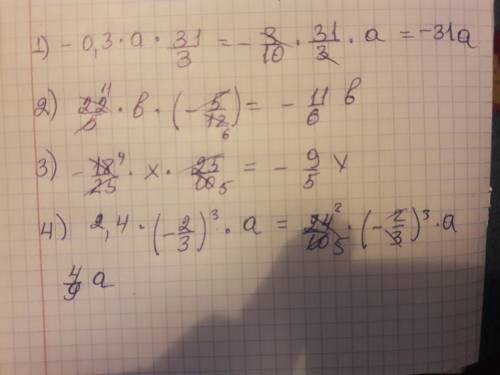 1) - 0,3 · a · 31/3 = - 3/10 · 31/3 · a = -31a
2) 22 11/5 · b · (- 5/12 6) = - 11/6 b
3) - 18 9/25 · x · 25/10 5 = - 9/5 x
4) 2,4 · (- 2/3)³ · a = 24 2/10 5 · (- 2/3)³ · a
4/9 a